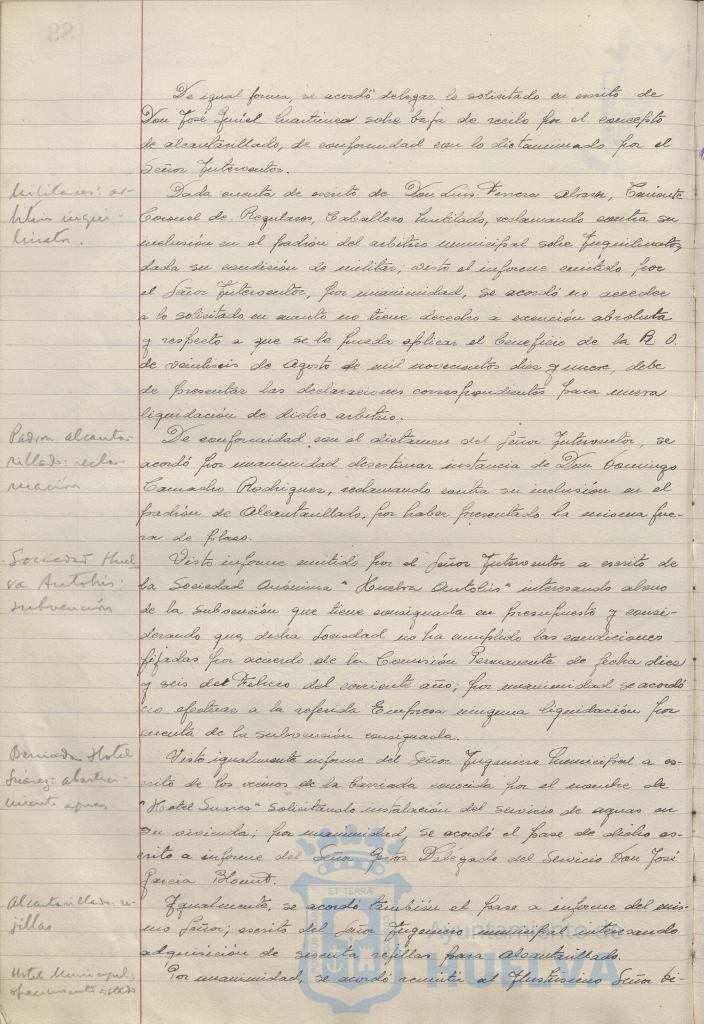 88
De igual forma, se acordó delegar lo solicitado en escrito de
Don José Martinez sobre baja de recibo por el concepto
de alcantarillado, de conformidad con lo dictaminado por el
Señor Interventor.
Militares: ar-
bitrio inqui-
linato.
Dada cuenta de escrito de Don Luis Ferrera Teniente
Coronel de Regulares, Caballero Mutilado, reclamando contra su
inclusión en el padrón del arbitrio municipal sobre Inquilinatos,
dada su condición de militar; visto el informe emitido por
el Señor Interventor, por unanimidad, se acordó no acceder
a lo solicitado en cuanto no tiene derecho a exención absoluta
y respecto a que se le pueda aplicar el beneficio de la R. O.
de veintiseis de Agosto de mil novecientos diez y nueve, debe
de presentar las declaraciones correspondientes para nueva
liquidación de dicho arbitrio.
Padron alcanta-
rillado: recla-
mación
De conformidad con el dictamen del Señor Interventor, se
acordó por unanimidad desestimar instancia de Don Domingo
Camacho Rodriguez, reclamando contra su inclusión en el
padrón de Alcantarillado, por haber presentado la misma fue-
ra de plazo.
Sociedad Huel
va Autobús:
subvención
Visto informe emitido por el Señor Interventor a escrito de
la Sociedad Anónima "Huelva Autobús" interesando abono
de la subvención que tiene consignada en presupuesto y consi-
derando que, dicha Sociedad no ha cumplido las condiciones
fijadas por acuerdo de la Comisión Permanente de fecha diez
y seis de Febrero del corriente año; por unanimidad se acordó
no efectuar a la referida Empresa ninguna liquidación por
cuenta de la subvención consignada.
Barriada Hotel
Suárez: abasteci-
miento aguas
Visto igualmente informe del Señor Ingeniero Municipal a es-
crito de los vecinos de la barriada conocida por el nombre de
"Hotel Suarez" solicitando instalación del servicio de aguas en
su vivienda; por unanimidad, se acordó el pase de dicho es-
crito a informe del Señor Gestor Delegado del Servicio Don José
Garcia
Alcantarillado: re-
jillas
Igualmente, se acordó también el pase a informe del mis-
mo Señor; escrito del Señor Ingeniero municipal interesando
adquisición de sesenta rejillas para Alcantarillado.
Hotel Municipal:
ofrecimiento Estado
Por unanimidad, se acordó remitir al Ilustrísimo Señor Di-
ET TERRÆ
Ayuntamiento
HUELVA